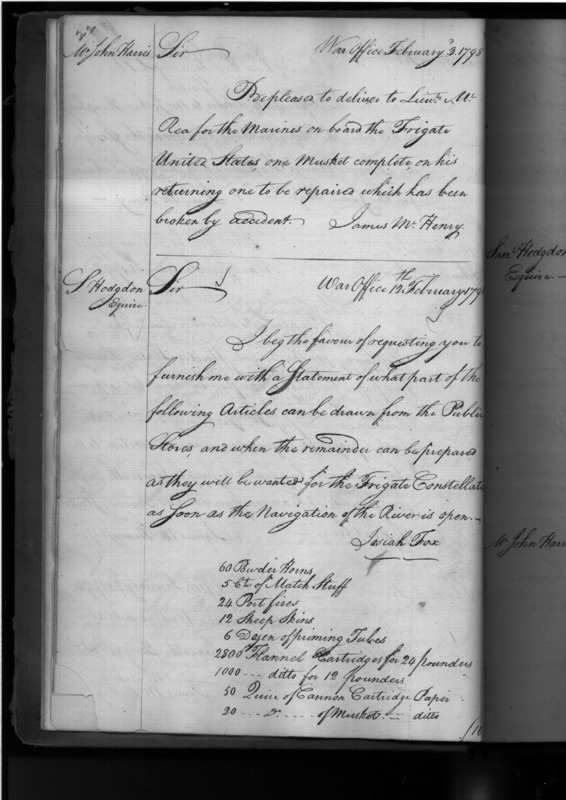 Mr John Harris Sir War Office February 3. 1798
Be pleased to deliver to Lieut. Mc
Rea for the Marines on board the Frigate
United States, one Musket complete, on his
returning one to be repaired which has been
broken by accident. James Mc Henry
S Hodgdon Esquire Sir War Office 12th February 179
I beg the favour of requesting you to
furnish me with a Statement of what part of the
following Articles can be drawn from the Public
Stores, and when the remainder can be prepared
as they will be wanted for the Frigate Constellat
as soon as the Navigation of the River is open.—
Josiah Fox
60 Powder Horns
5 Ct. of Match Stuff
24 Port fires
12 Sheep Skins
6 Dozen of priming Tubes
2800 Flannel Cartridges for 24 pounders
1000 --- ditto for 12 pounders
50 Quire of Cannon Cartridge Paper
20 --- Do. --- of Musket --- ditto
Saml. Hodgdon
Esquire —
Mr John Harr